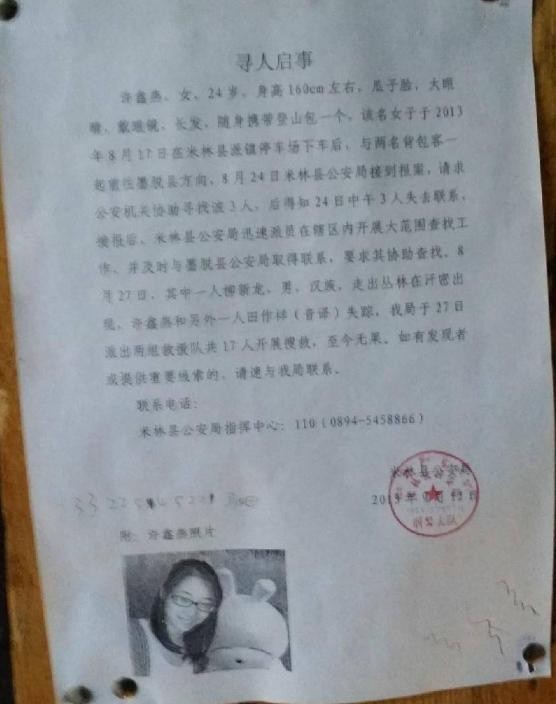 寻人启事
许鑫燕、女、24岁、身高160cm左右，瓜子脸，大眼
睛，戴眼镜，长发，随身携带登山包一个。该名女子于2013
年8月17日在米林县派镇停车场下车后，与两名背包客一
起前往墨脱县方向，8月24日米林县公安局接到报案，请求
公安机关协助寻找该3人，后得知24日中午3人失去联系，
接报后，米林县公安局迅速派员在辖区内开展大范围查找工
作，并及时与墨脱县公安局取得联系，要求其协助查找。8
月27日，其中一人柳新龙，男，汉族，走出丛林在汗密出
现，许鑫燕和另外一人田作样（音译）失踪，我局于27日
派出两组救援队共17人开展搜救，至今无果。如有发现者
或提供重要线索的，请速与我局联系。
联系电话：
米林县公安局指挥中心：110（0894-5458866）
米林县公安局
2013年 月 日
刑警大队
附：许鑫燕照片